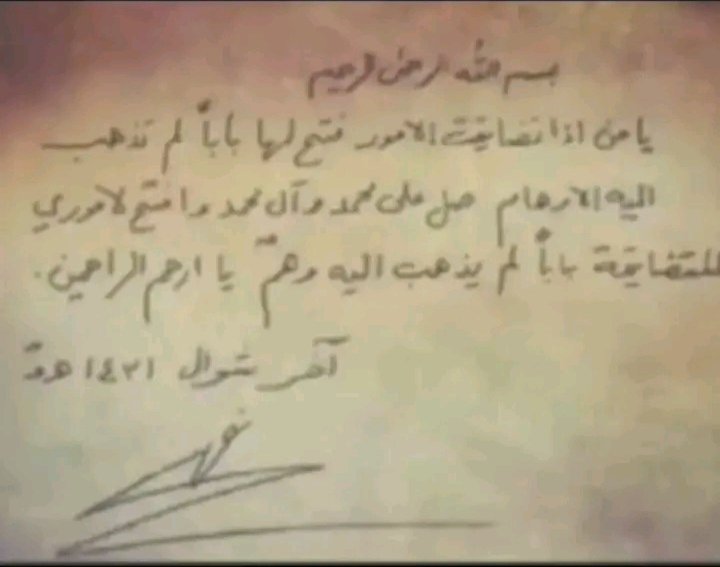 بسم الله الرحمن الرحيم
يا من اذا تضايقت الامور فتح لها باباً لم تذهب
اليه الاوهام صل على محمد وآل محمد وافتح لاموري
المتضايقة باباً لم يذهب اليه وهمٌ يا ارحم الراحمين.
آخر شوال ١٤٣١ هـ